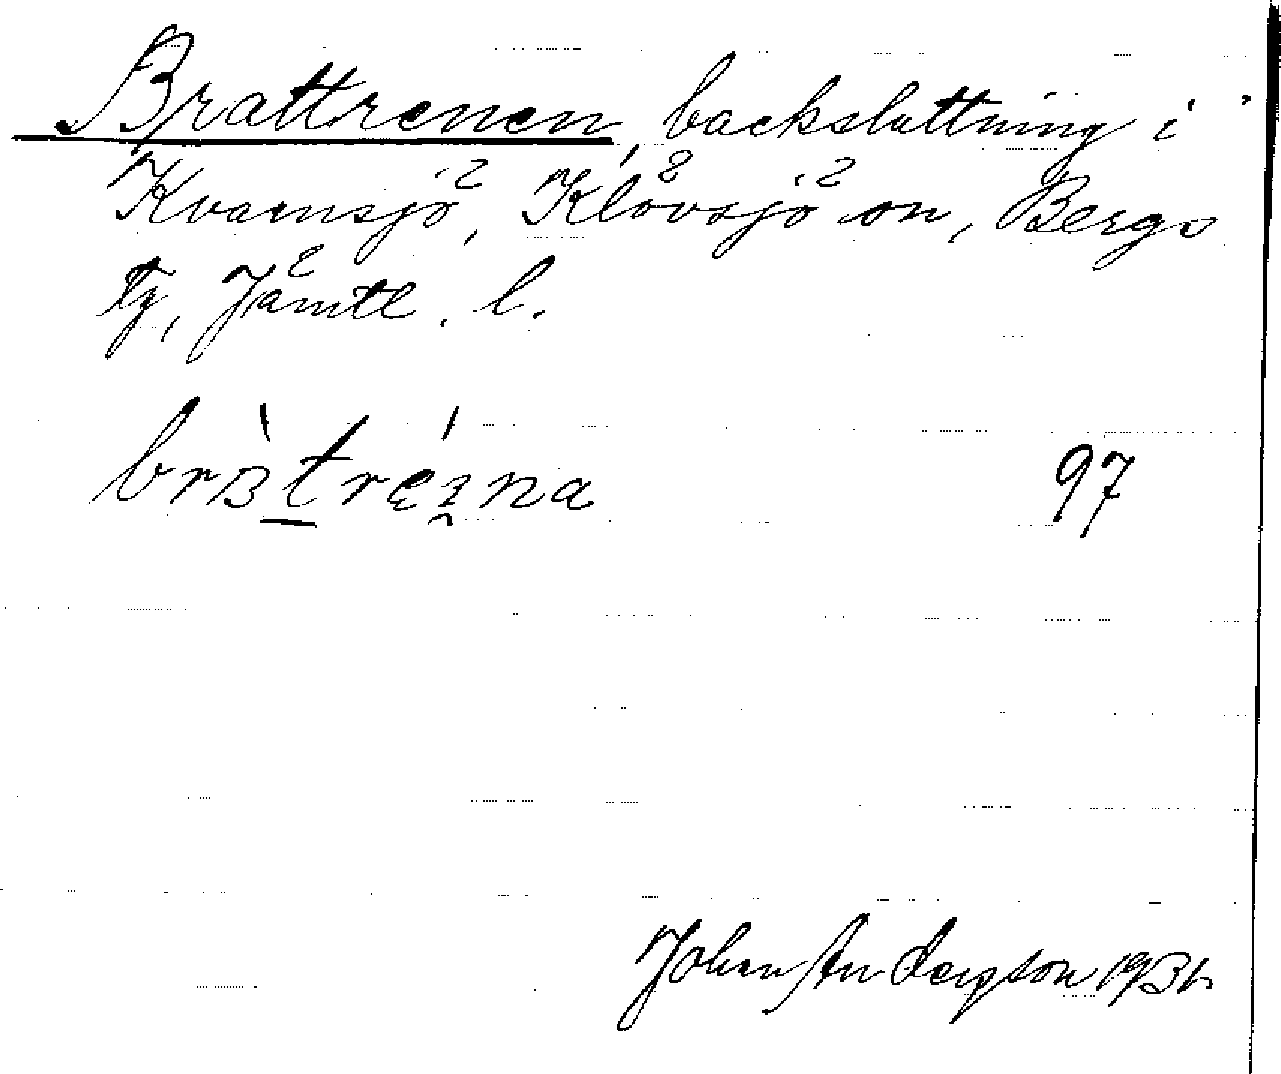 Brattrenen, backsluttning i
Kvarnsjö, Klövsjö sn, Bergs
tg, Jämtl. l.
97
Johan Anderson 1931